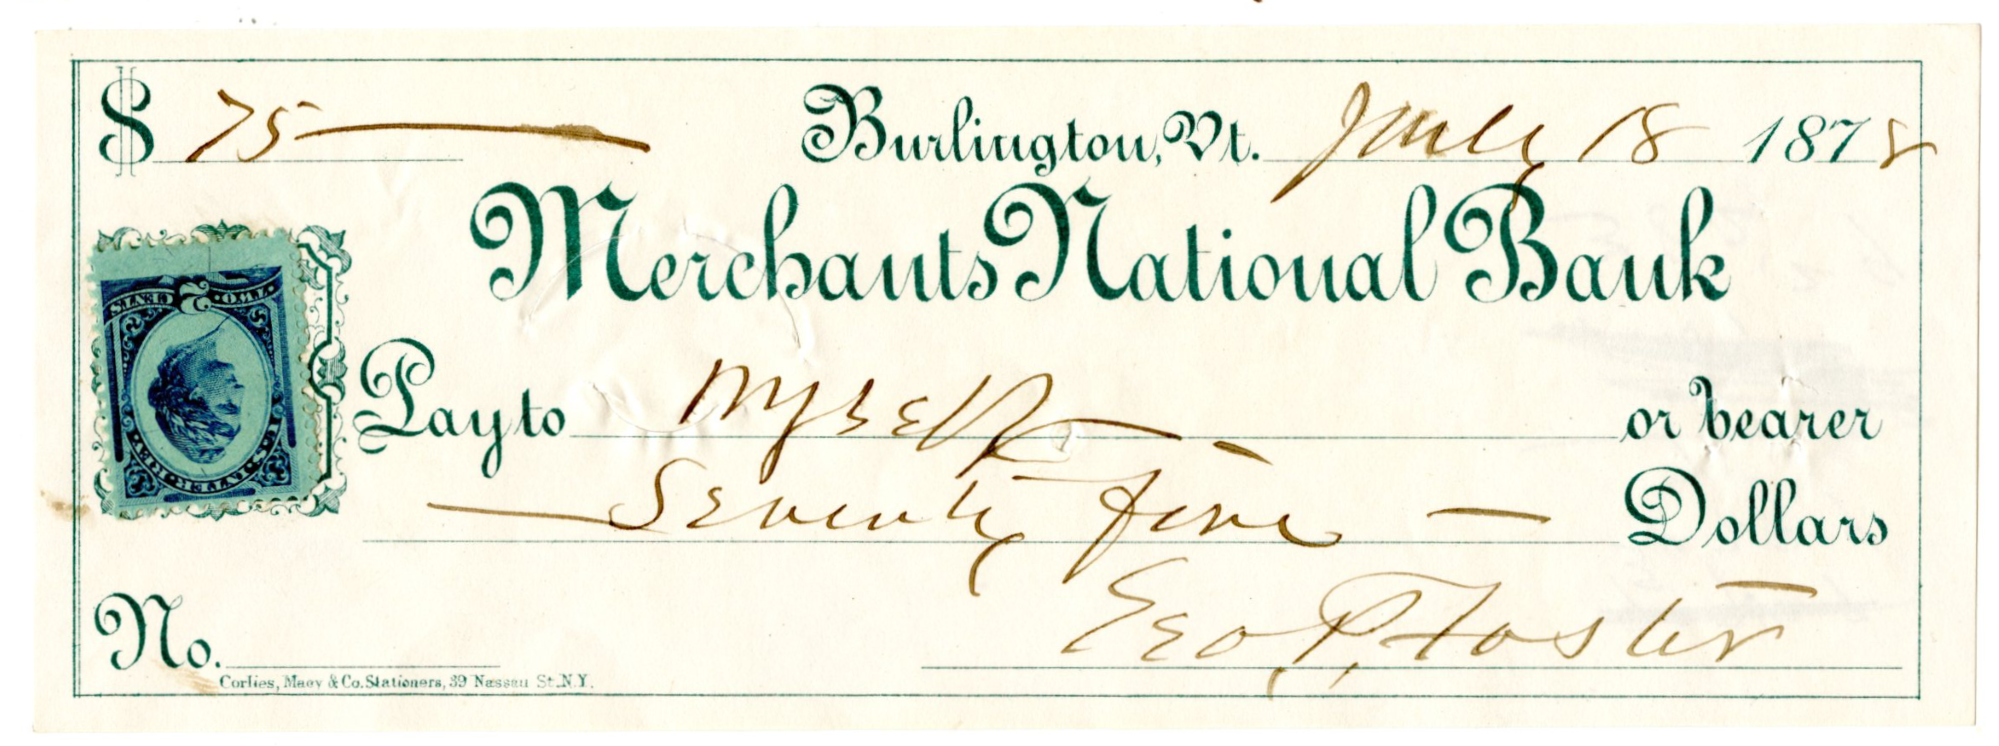 $ 75 — Burlington, Vt. July 18 1878
Merchants National Bank
TWO 2 CENTS
U.S. INTER. REV.
Pay to Myself — or bearer
— Seventy five — Dollars
No. Geo. P. Foster
Corlies, Macy & Co. Stationers, 39 Nassau St. N.Y.